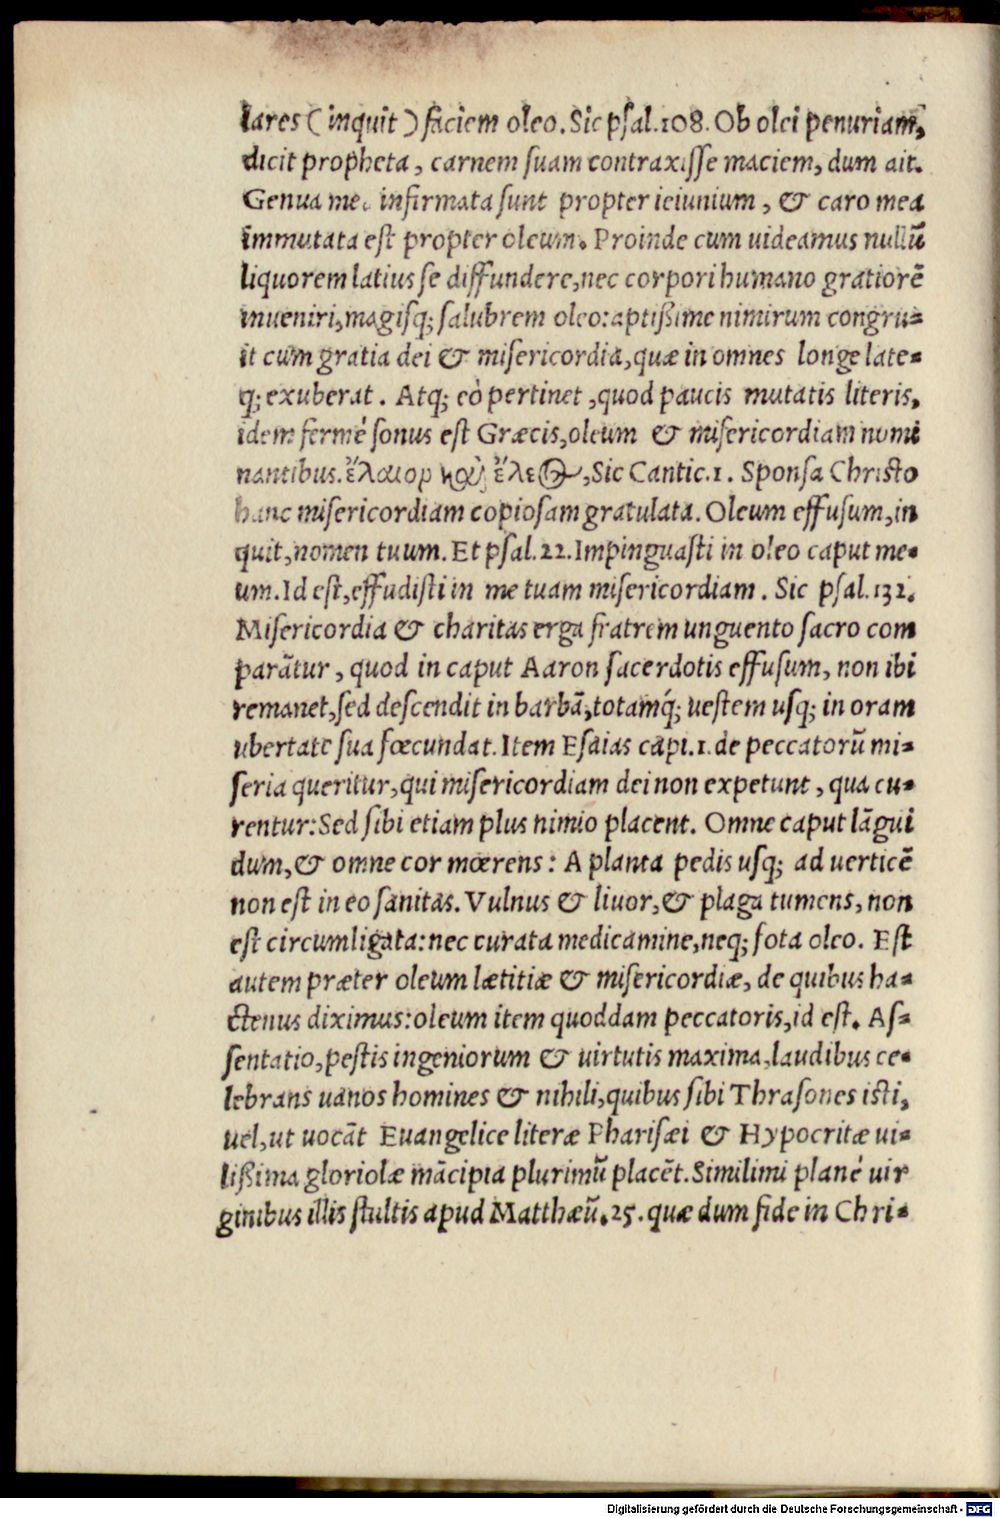 lares (inquit) faciem oleo. Sic psal. 108. Ob olei penuriam,
dicit propheta, carnem suam contraxisse maciem, dum ait.
Genua mea infirmata sunt propter ieiunium, & caro mea
immutata est propter oleum. Proinde cum uideamus nullū
liquorem latius se diffundere, nec corpori humano gratiorē
inueniri, magisq; salubrem oleo: aptißime nimirum congru-
it cum gratia dei & misericordia, quæ in omnes longe late-
q; exuberat. Atq; eò pertinet, quod paucis mutatis literis,
idem fermé sonus est Græcis, oleum & misericordiam nomi
nantibus. ἔλαιον καὶ ἔλεος, Sic Cantic. 1. Sponsa Christo
hanc misericordiam copiosam gratulata. Oleum effusum, in
quit, nomen tuum. Et psal. 22. Impinguasti in oleo caput me-
um. Id est, effudisti in me tuam misericordiam. Sic psal. 132.
Misericordia & charitas erga fratrem unguento sacro com
parātur, quod in caput Aaron sacerdotis effusum, non ibi
remanet, sed descendit in barbā, totamq́; uestem usq; in oram
ubertate sua fœcundat. Item Esaias capi. 1. de peccatorū mi-
seria queritur, qui misericordiam dei non expetunt, qua cu-
rentur: Sed sibi etiam plus nimio placent. Omne caput lāgui
dum, & omne cor mœrens: A planta pedis usq; ad uerticē
non est in eo sanitas. Vulnus & liuor, & plaga tumens, non
est circumligata: nec curata medicamine, neq; fota oleo. Est
autem præter oleum lætitiæ & misericordiæ, de quibus ha-
ctenus diximus: oleum item quoddam peccatoris, id est. As-
sentatio, pestis ingeniorum & uirtutis maxima, laudibus ce-
lebrans uanos homines & nihili, quibus sibi Thrasones isti,
uel, ut uocāt Euangelice literæ Pharisæi & Hypocritæ ui-
lißima gloriolæ mācipia plurimū placēt. Similimi plané uir
ginibus illis stultis apud Matthæū. 25. quæ dum fide in Chri-
Digitalisierung gefördert durch die Deutsche Forschungsgemeinschaft - DFG